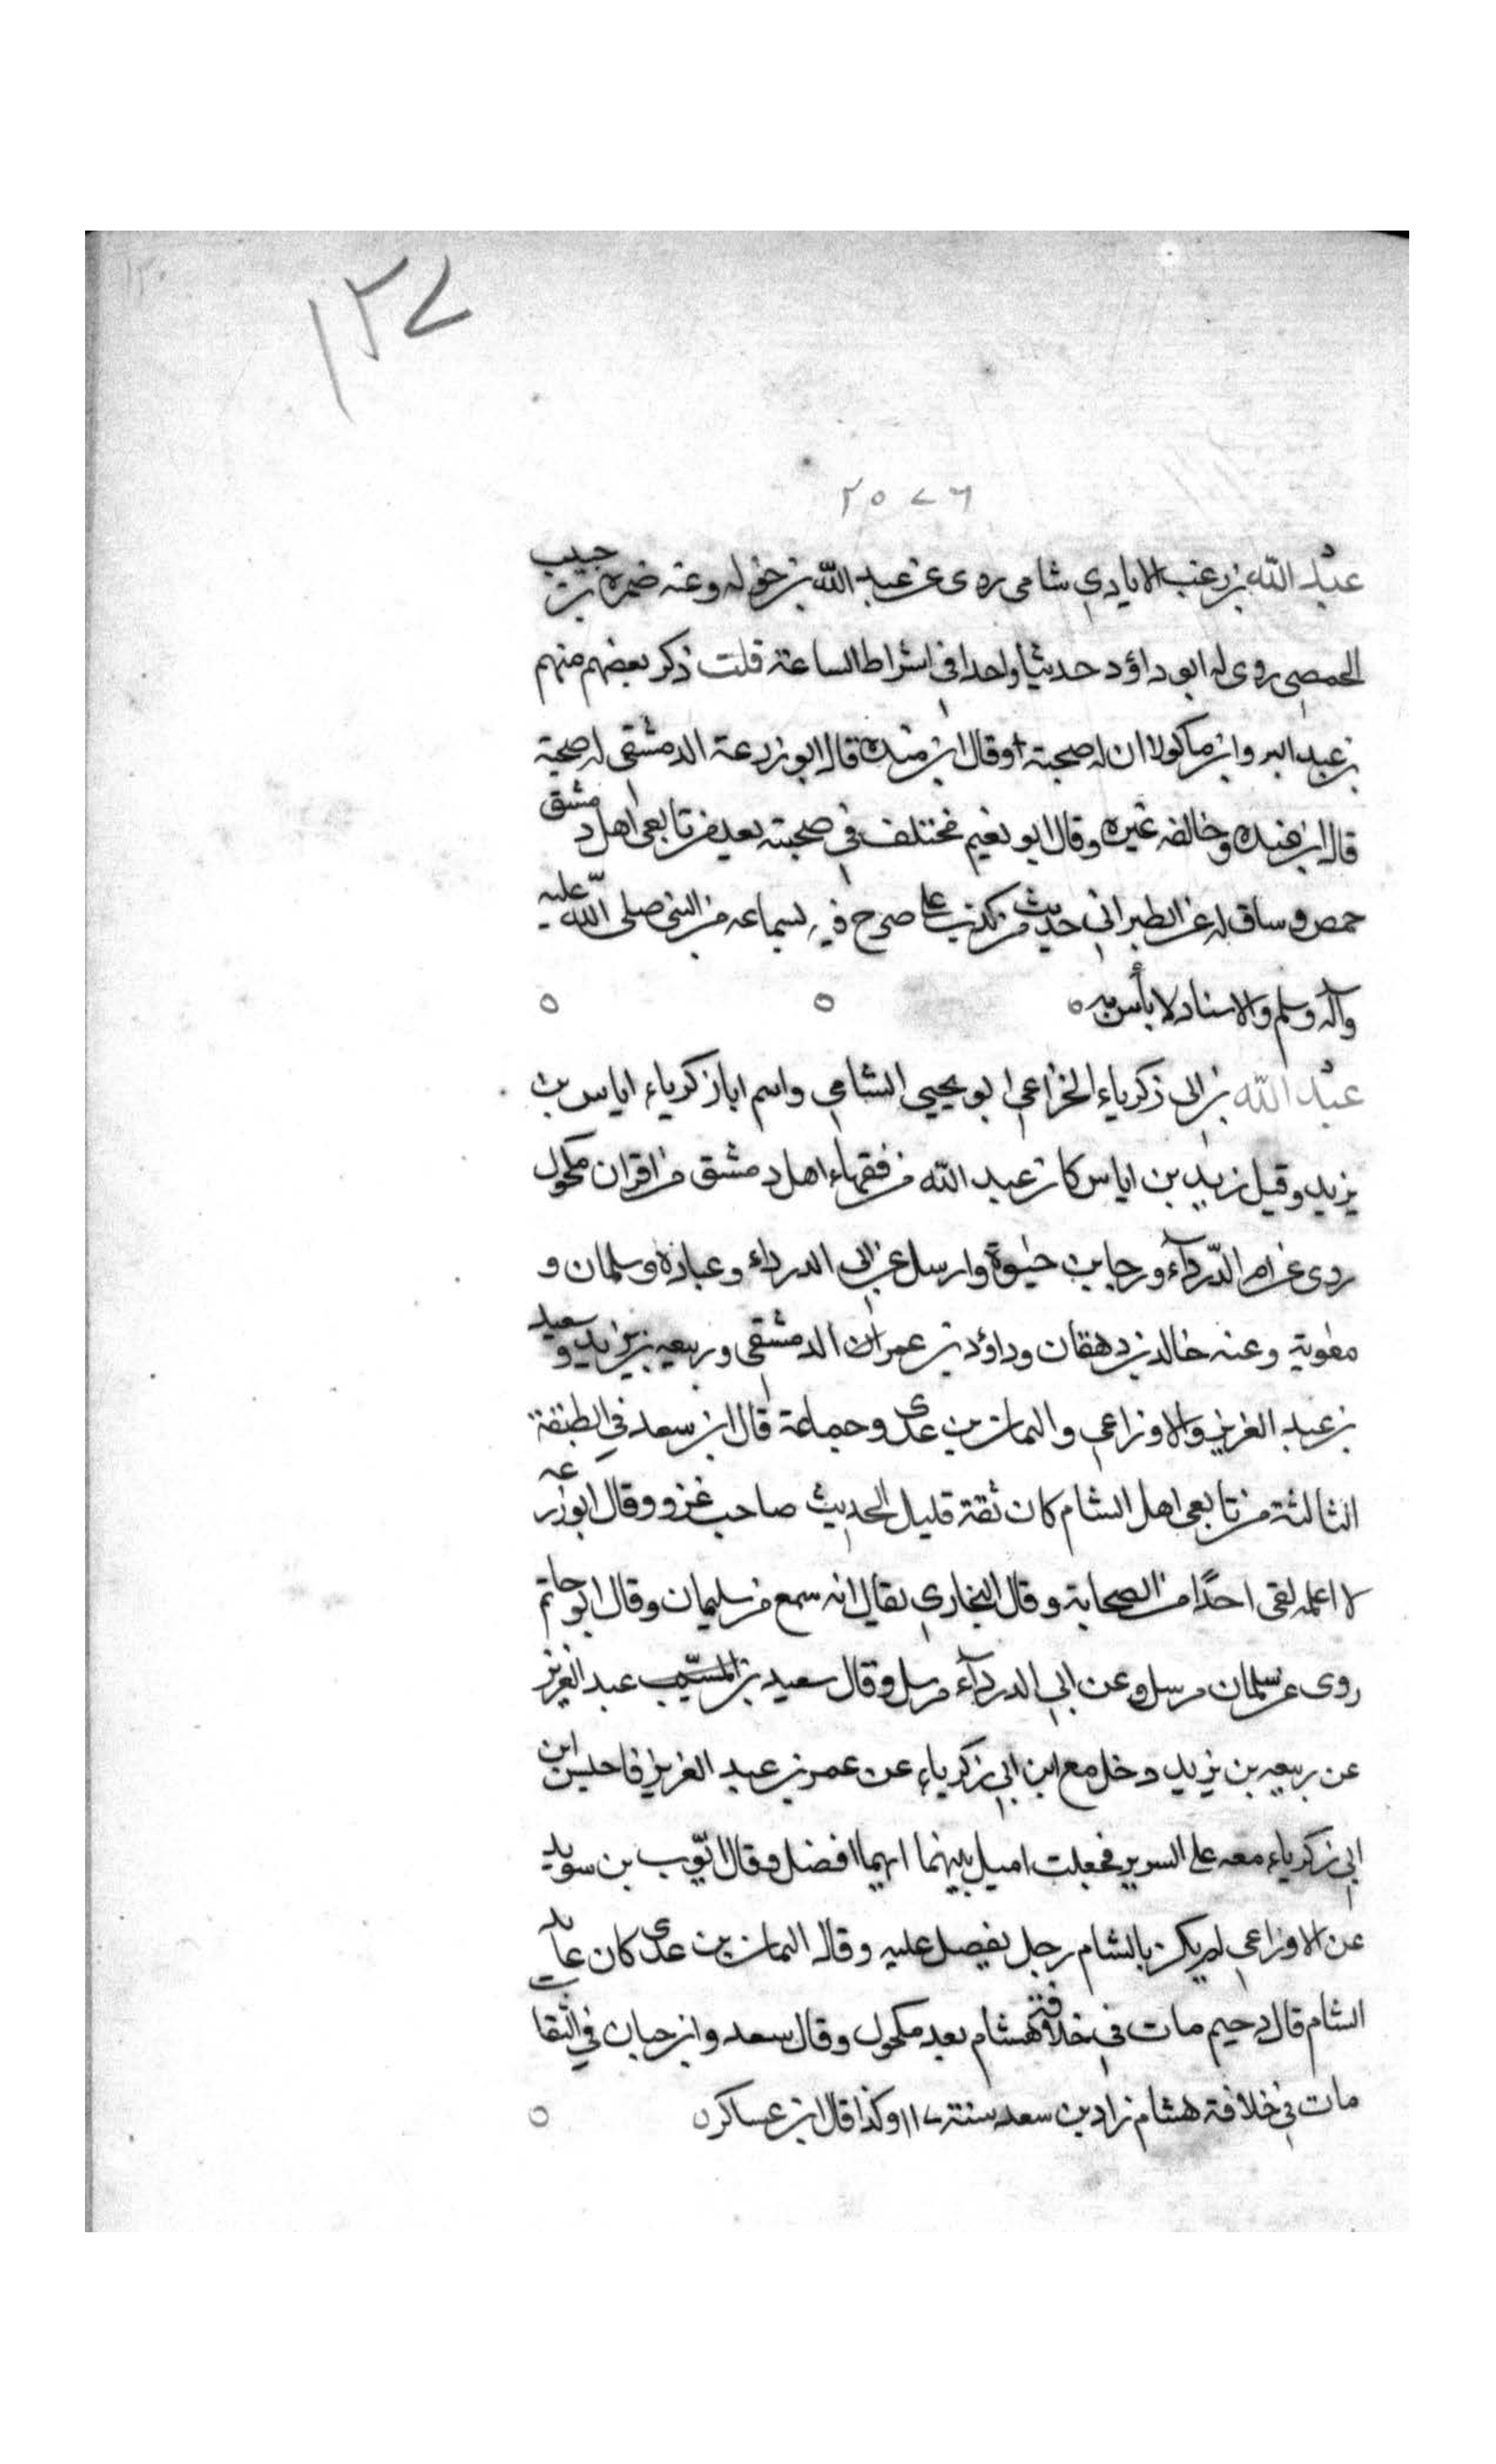 ١٢٧
٢٥٧٦
عبد الله بن زغب الايادي شامي روى عن عبد الله بن حوله وعنه ضمره بن حبيب
الحمصي روى له ابو داؤد حديثا واحدا في اشراط الساعة قلت ذكر بعضهم منهم
بن عبد البر وابن ماكولا ان له صحبة وقال ابن منده قال ابو زرعة الدمشقي له صحبة
قال ابن منده وخالفه غيره وقال ابو نعيم مختلف في صحبته يعد من تابعي اهل دمشق
حمص وساق له عن الطبراني حديث من كذب علي صرح فيه بسماعه من النبي صلى الله عليه
وآله وسلم والاسناد لا بأس به
عبد الله بن ابي زكرياء الخزاعي ابو يحيى الشامي واسم ابا زكرياء اياس بن
يزيد وقيل زيد بن اياس كان عبد الله من فقهاء اهل دمشق من اقران مكحول
روى عن ام الدّرداء ورجا بن حيٰوة وارسل عن ابي الدرداء وعبادة وسلمان و
معٰوية وعنه خالد بن دهقان وداؤد بن عمران الدمشقي وربيعه بن يزيد وسعيد
بن عبد العزيز والاوزاعي واليمان بن عدى وجماعة قال ابن سعد في الطبقة
الثالثة من تابعي اهل الشام كان ثقة قليل الحديث صاحب غزو وقال ابو زرعه
لا اعلمه لقى احدًا من الصحابة وقال البخاري يقال انه سمع من سليمان وقال ابو حاتم
روى عن سلمان مرسل وعن ابي الدرداء مرسل وقال سعيد بن المسيّب عبد العزيز
عن ربيعه بن يزيد دخل مع ابن ابي زكرياء عن عمر بن عبد العزيز فاجلس ابن
ابي زكرياء معه على السرير فجعلت اميل بينهما ايهما افضل وقال ايّوب بن سويد
عن الاوزاعي لم يكن بالشام رجل يفضل عليه وقال اليمان بن عدى كان عابد
الشام قال دحيم مات في خلافة هشام بعد مكحول وقال سعد وابن حبان في الثقات
مات في خلافة هشام زاد بن سعد سنة ١١٧ وكذا قال ابن عساكر